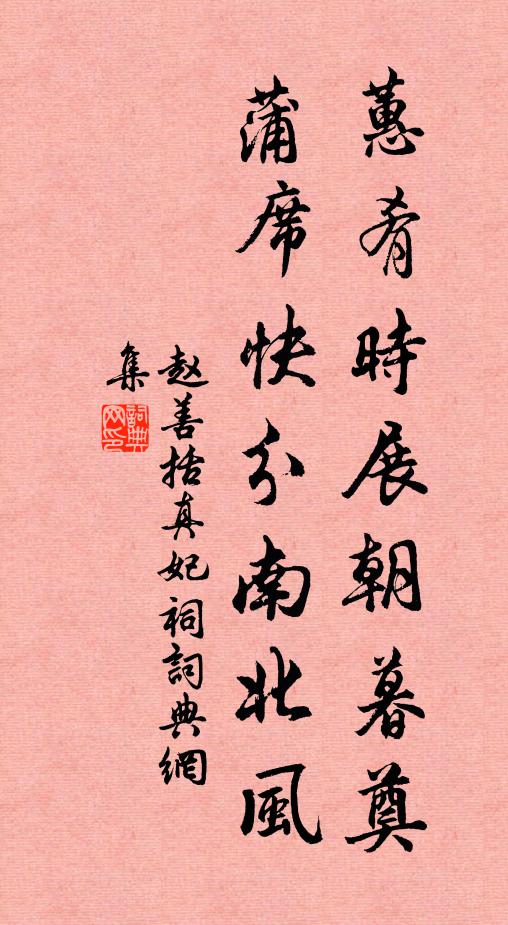 蕙肴時展朝暮奠
蒲席快分南北風
赵善括真妃祠詞典網
集
詞典网印